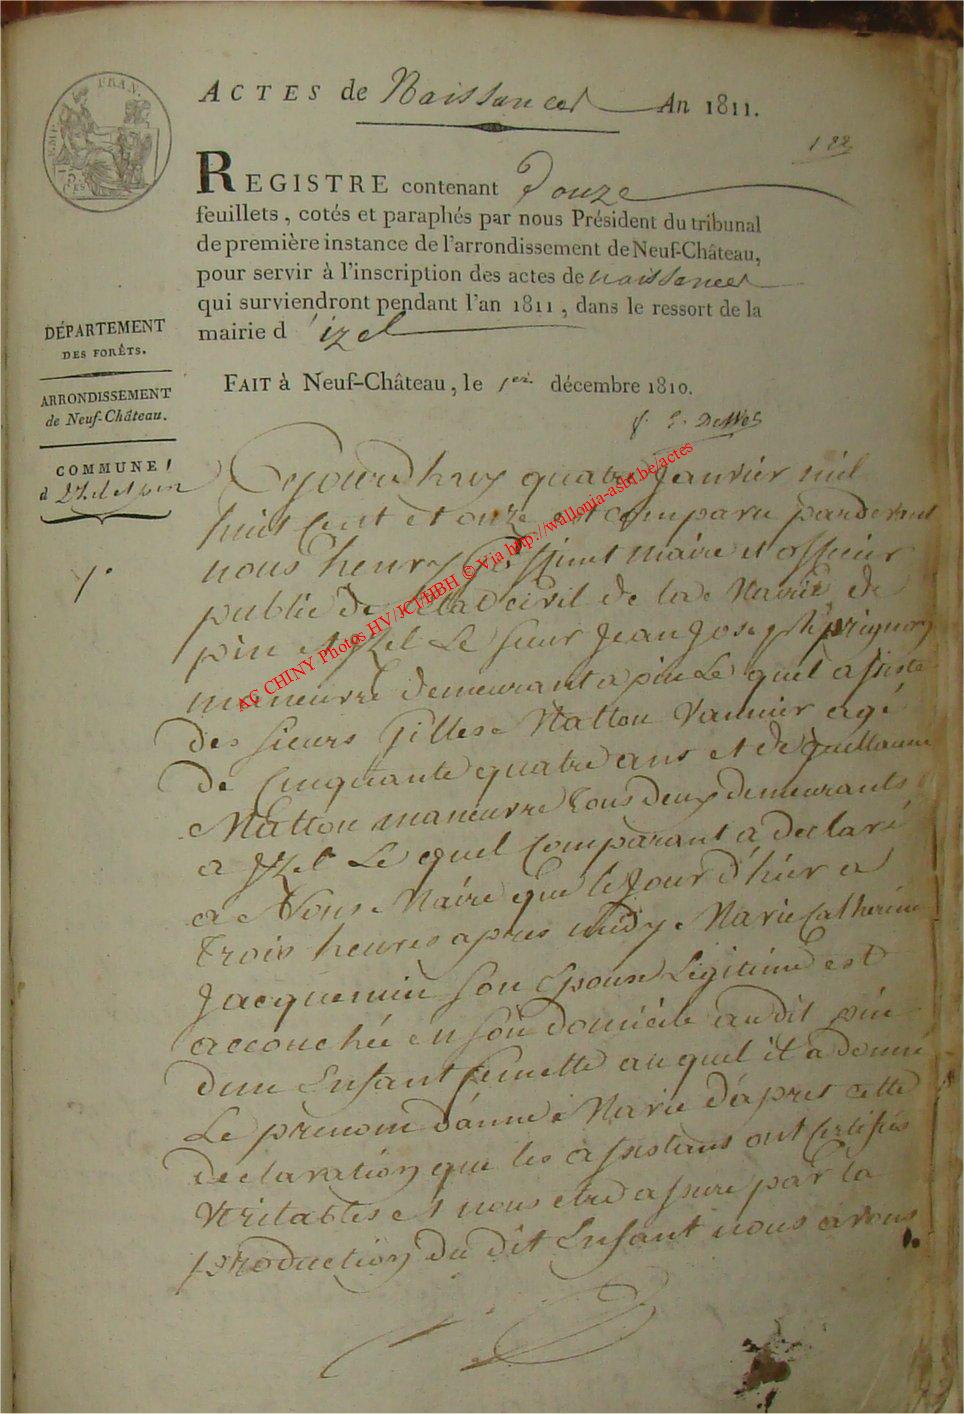 EMP. FRAN.
75
CES
ACTES de Naissances An 1811.
122
REGISTRE contenant Douze
feuillets, cotés et paraphés par nous Président du tribunal
de première instance de l'arrondissement de Neuf-Château,
pour servir à l'inscription des actes de naissances
qui surviendront pendant l'an 1811, dans le ressort de la
mairie d'izel
DÉPARTEMENT
DES FORÊTS.
ARRONDISSEMENT
de Neuf-Château.
COMMUNE
d'Izel et pin
FAIT à Neuf-Château, le 1er. décembre 1810.
1°
Cejourdhuy quatre Janvier mil
huit Cent et onze est comparu pardevant
nous henry maire et officier
public de l'Etat civil de la Mairie de
pin et Izel Le sieur Jean Joseph prignon
maneuvre demeurant a pin Le quel assisté
des sieurs Gilles Natton Vannier agé
de Cinquante quatre ans et de guillaume
Natton maneuvre tous deux demeurants
a Izel Le quel Comparant a declaré
a Nous Maire que le Jour d'hier a
trois heures apres midy Marie Catherine
Jacquemin son Epouse Legitime est
accouchée en son domicile audit pin
dun Enfant femelle auquel il a donné
Le prenom d'anne Marie d'apres cette
declaration que les assistans ont Certifiés
Veritables et nous etre assuré par la
production du dit Enfant nous avons
AG CHINY Photos HV/JCJ/HBH © Via http://wallonia-asbl.be/actes